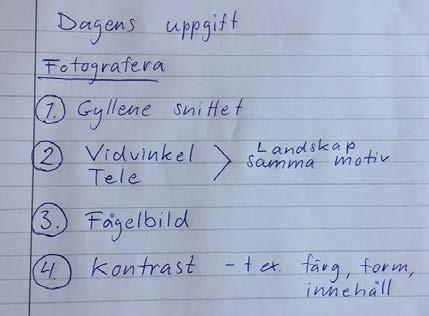 Dagens uppgift
Fotografera
1. Gyllene snittet
2 Vidvinkel > Landskap
Tele samma motiv
3. Fågelbild
4. Kontrast - t ex. färg, form,
innehåll